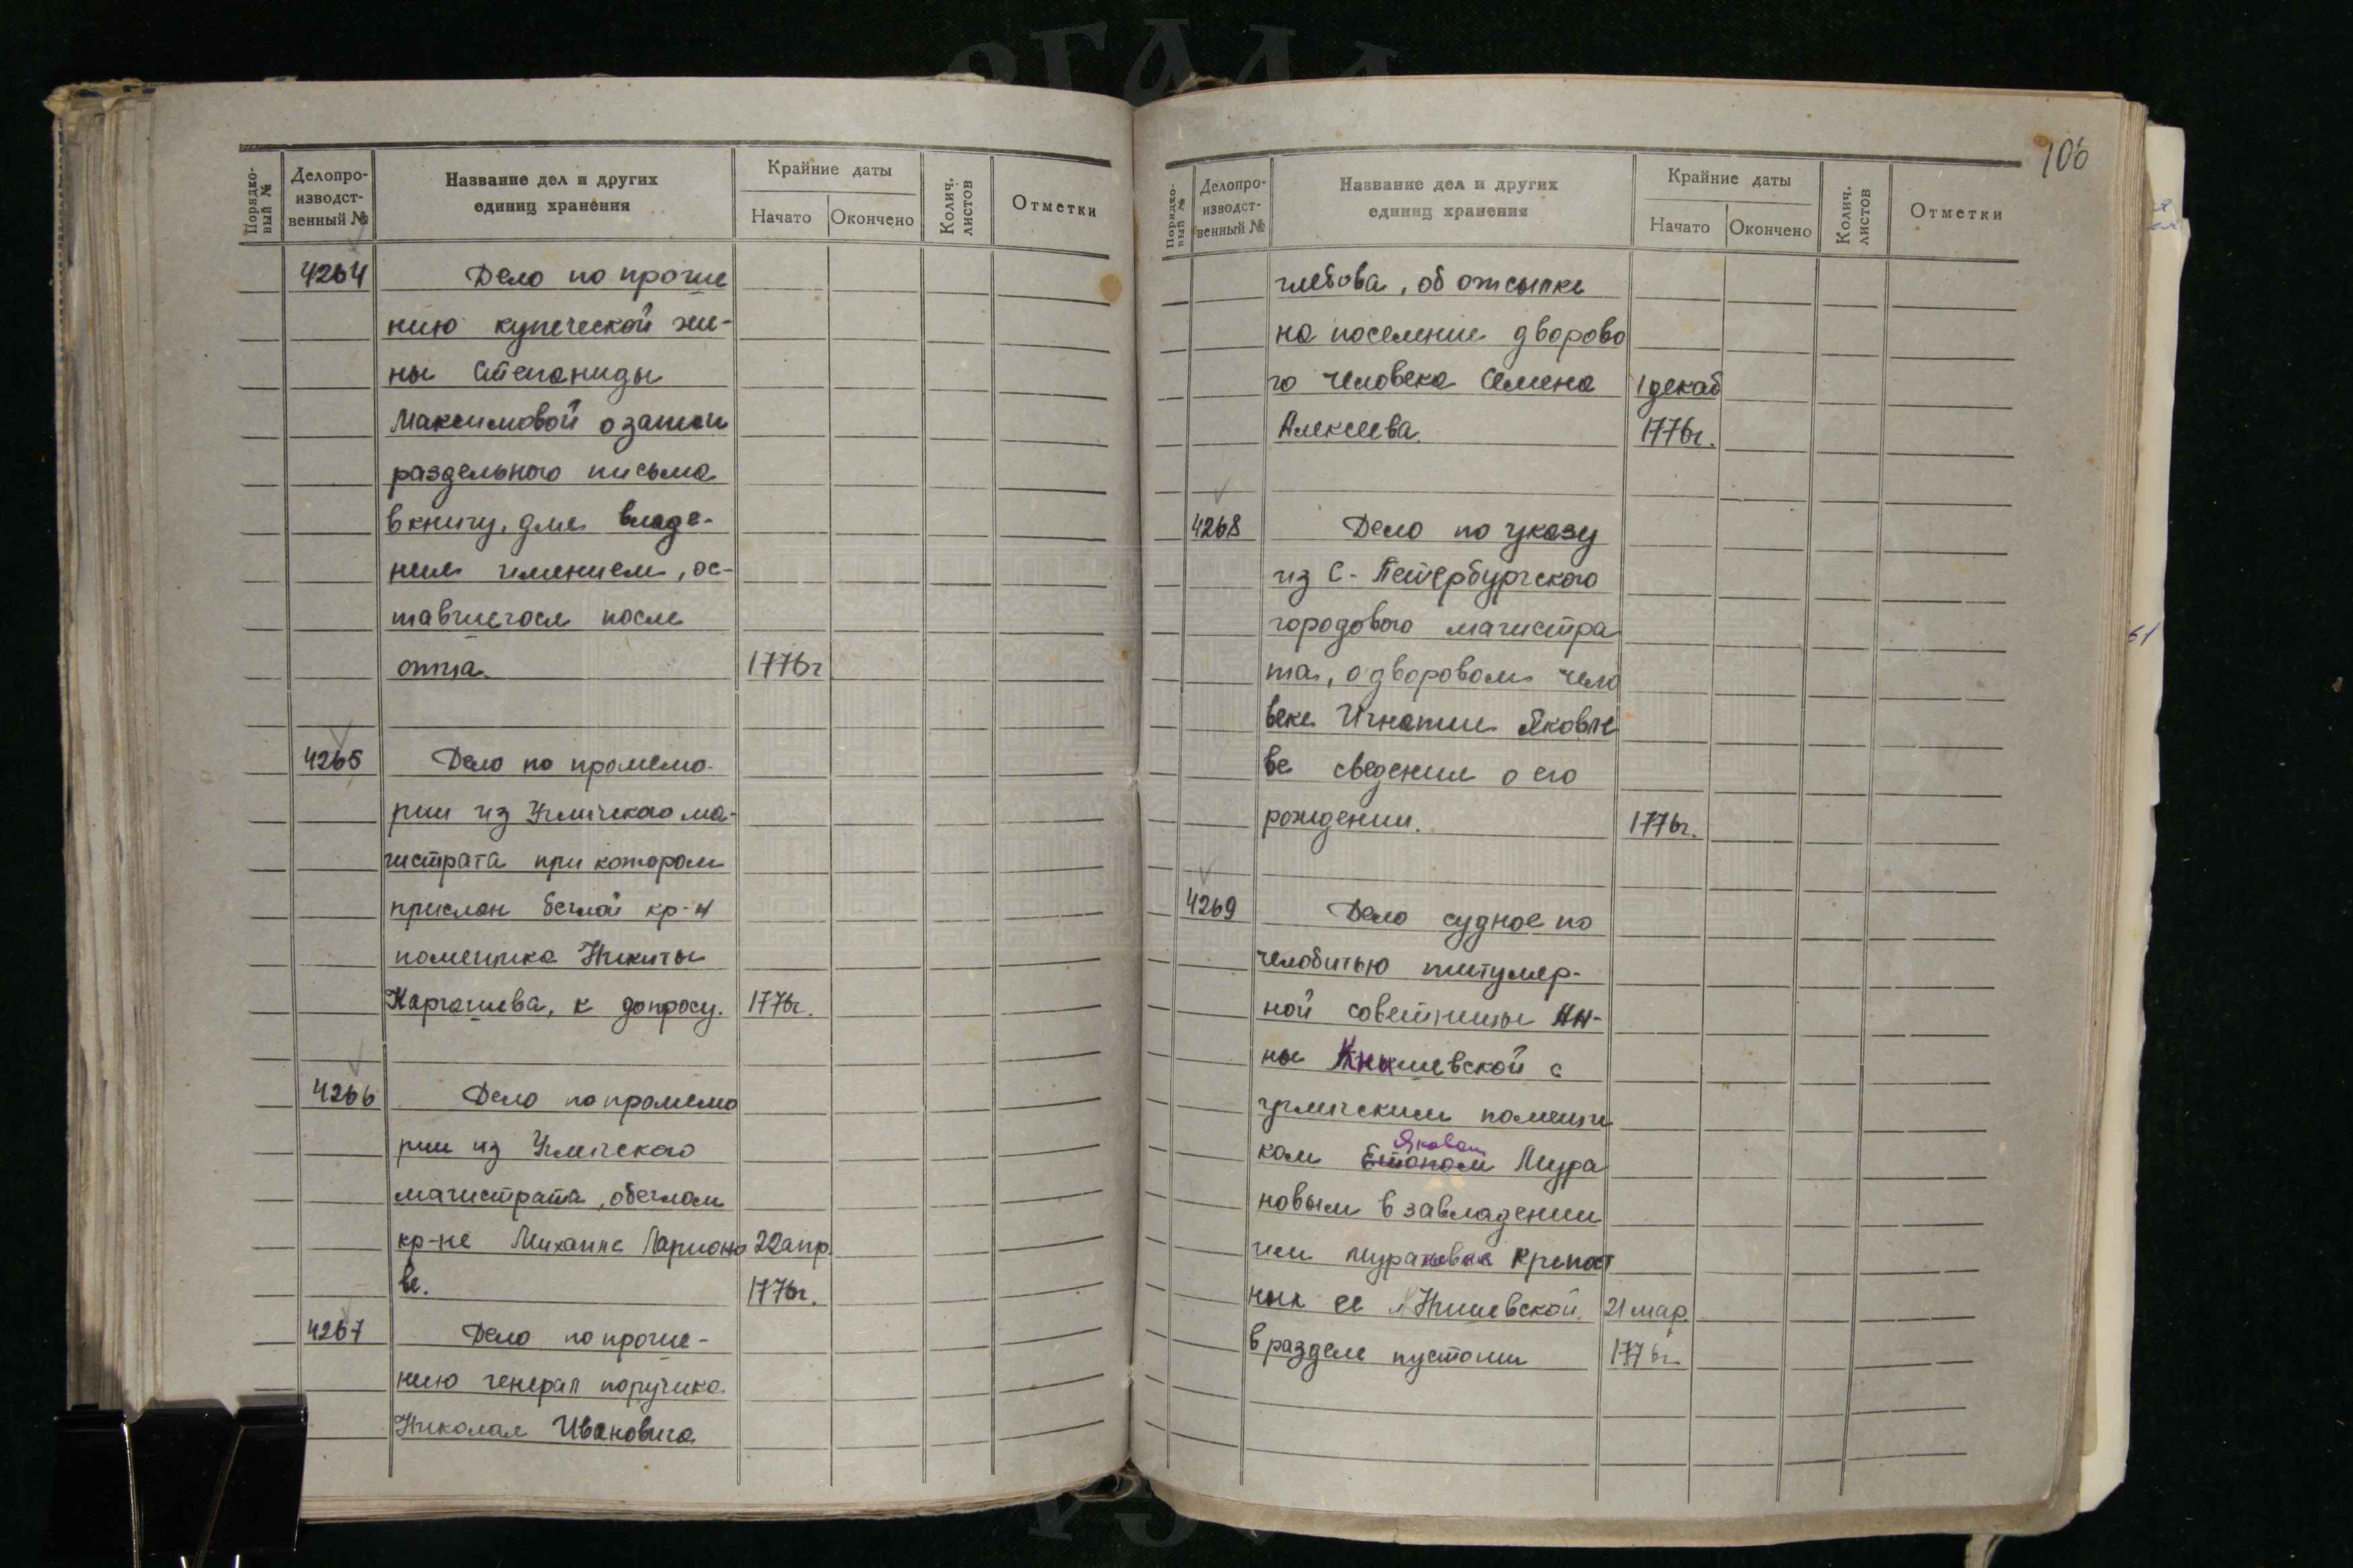 Порядко-
вый №
Делопро-
изводст-
венный №
Название дел и других
единиц хранения
Крайние даты
Начато
Окончено
Колич.
листов
Отметки
4264
Дело по проше
нию купеческой же-
ны Степаниды
Максимовой о записи
раздельного письма
в книгу, для владе-
ния имением, ос-
тавшегося после
отца. 1776г
4265
Дело по промемо-
рии из Угличского ма-
гистрата при котором
прислан беглой кр-н
помещика Никиты
Каргашева, к допросу. 1776г.
4266
Дело по промемо
рии из Угличского
магистрата, о беглом
кр-не Михаиле Ларионо 22 апр.
ве. 1776г.
4267
Дело по проше-
нию генерал поручика
Николая Ивановича
106
Порядко-
вый №
Делопро-
изводст-
венный №
Название дел и других
единиц хранения
Крайние даты
Начато
Окончено
Колич.
листов
Отметки
глебова, об отсылке
на поселение дворово
го человека Семена 1 декаб
Алексеева. 1776г.
4268
Дело по указу
из С-Петербургского
городового магистра
та, о дворовом чело
веке Игнатии Яковле
ве сведения о его
рождении. 1776г.
4269
Дело судное по
челобитью титуляр-
ной советницы Ан-
ны Книшевской с
угличским помещи
Яковом
ком Мура
новым в завладении
им Мурановым крепост
ных ее Нишевской. 21 мар.
в разделе пустоши 1776г.
51